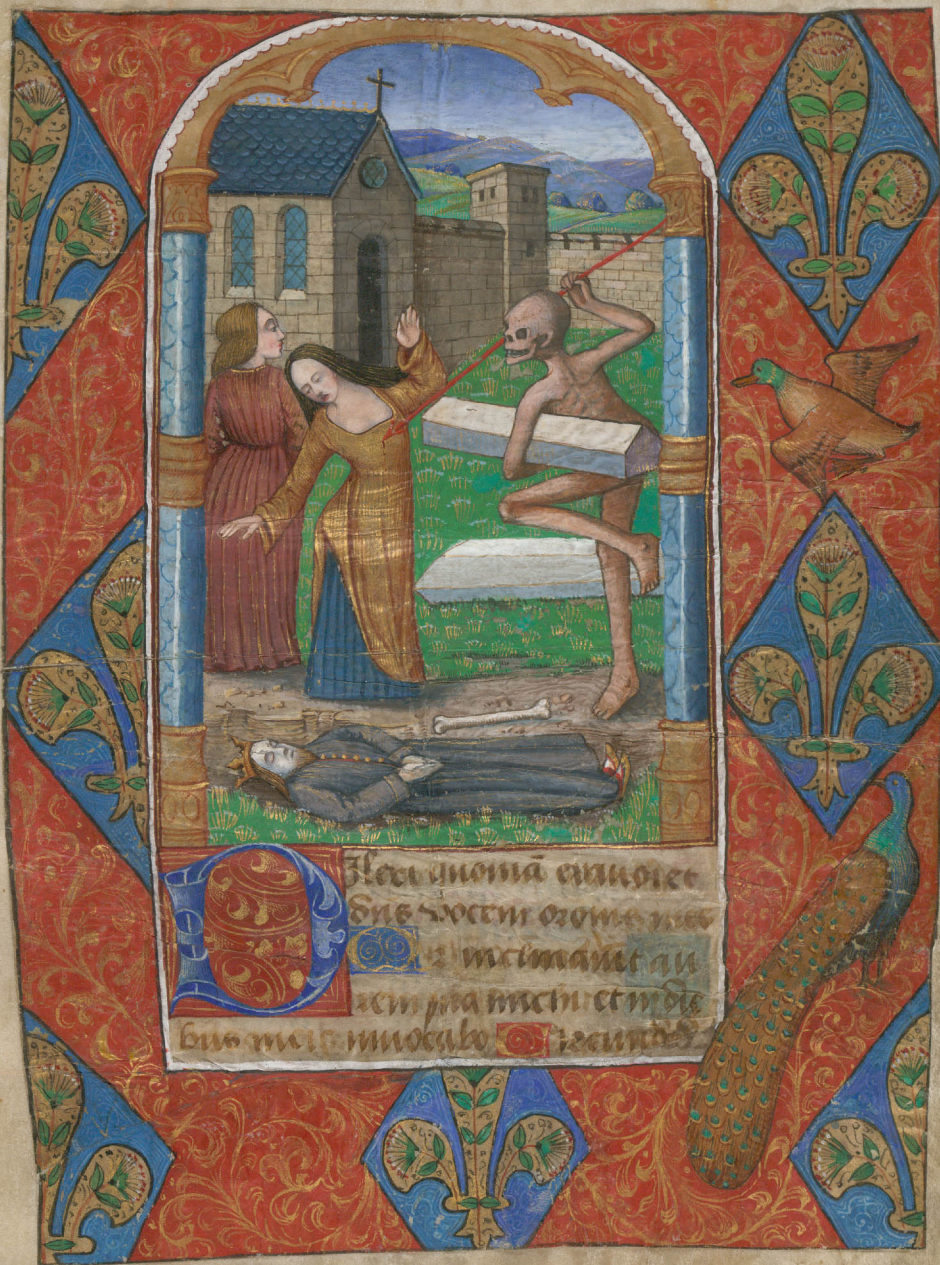 Dilexi quoniā exaudiet
dn̄s vocem oronis mee
Quia inclinavit au
rem suā michi et in die
bus meis invocabo Circunded